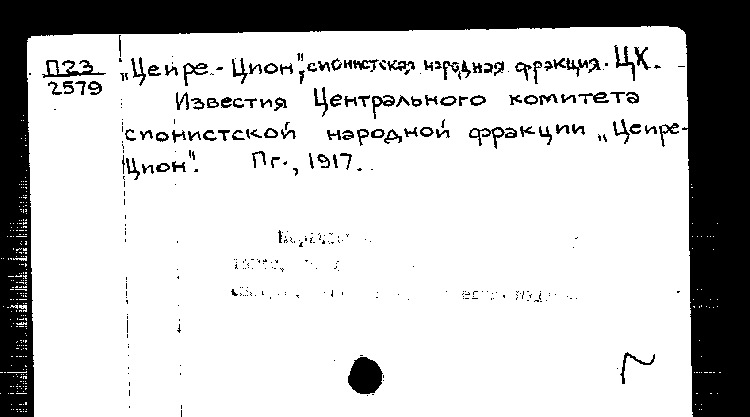 П23
2579
„Цеире-Цион", сионистская народная фракция. ЦК.
Известия Центрального комитета
сионистской народной фракции „Цеире-
Цион". Пг., 1917.